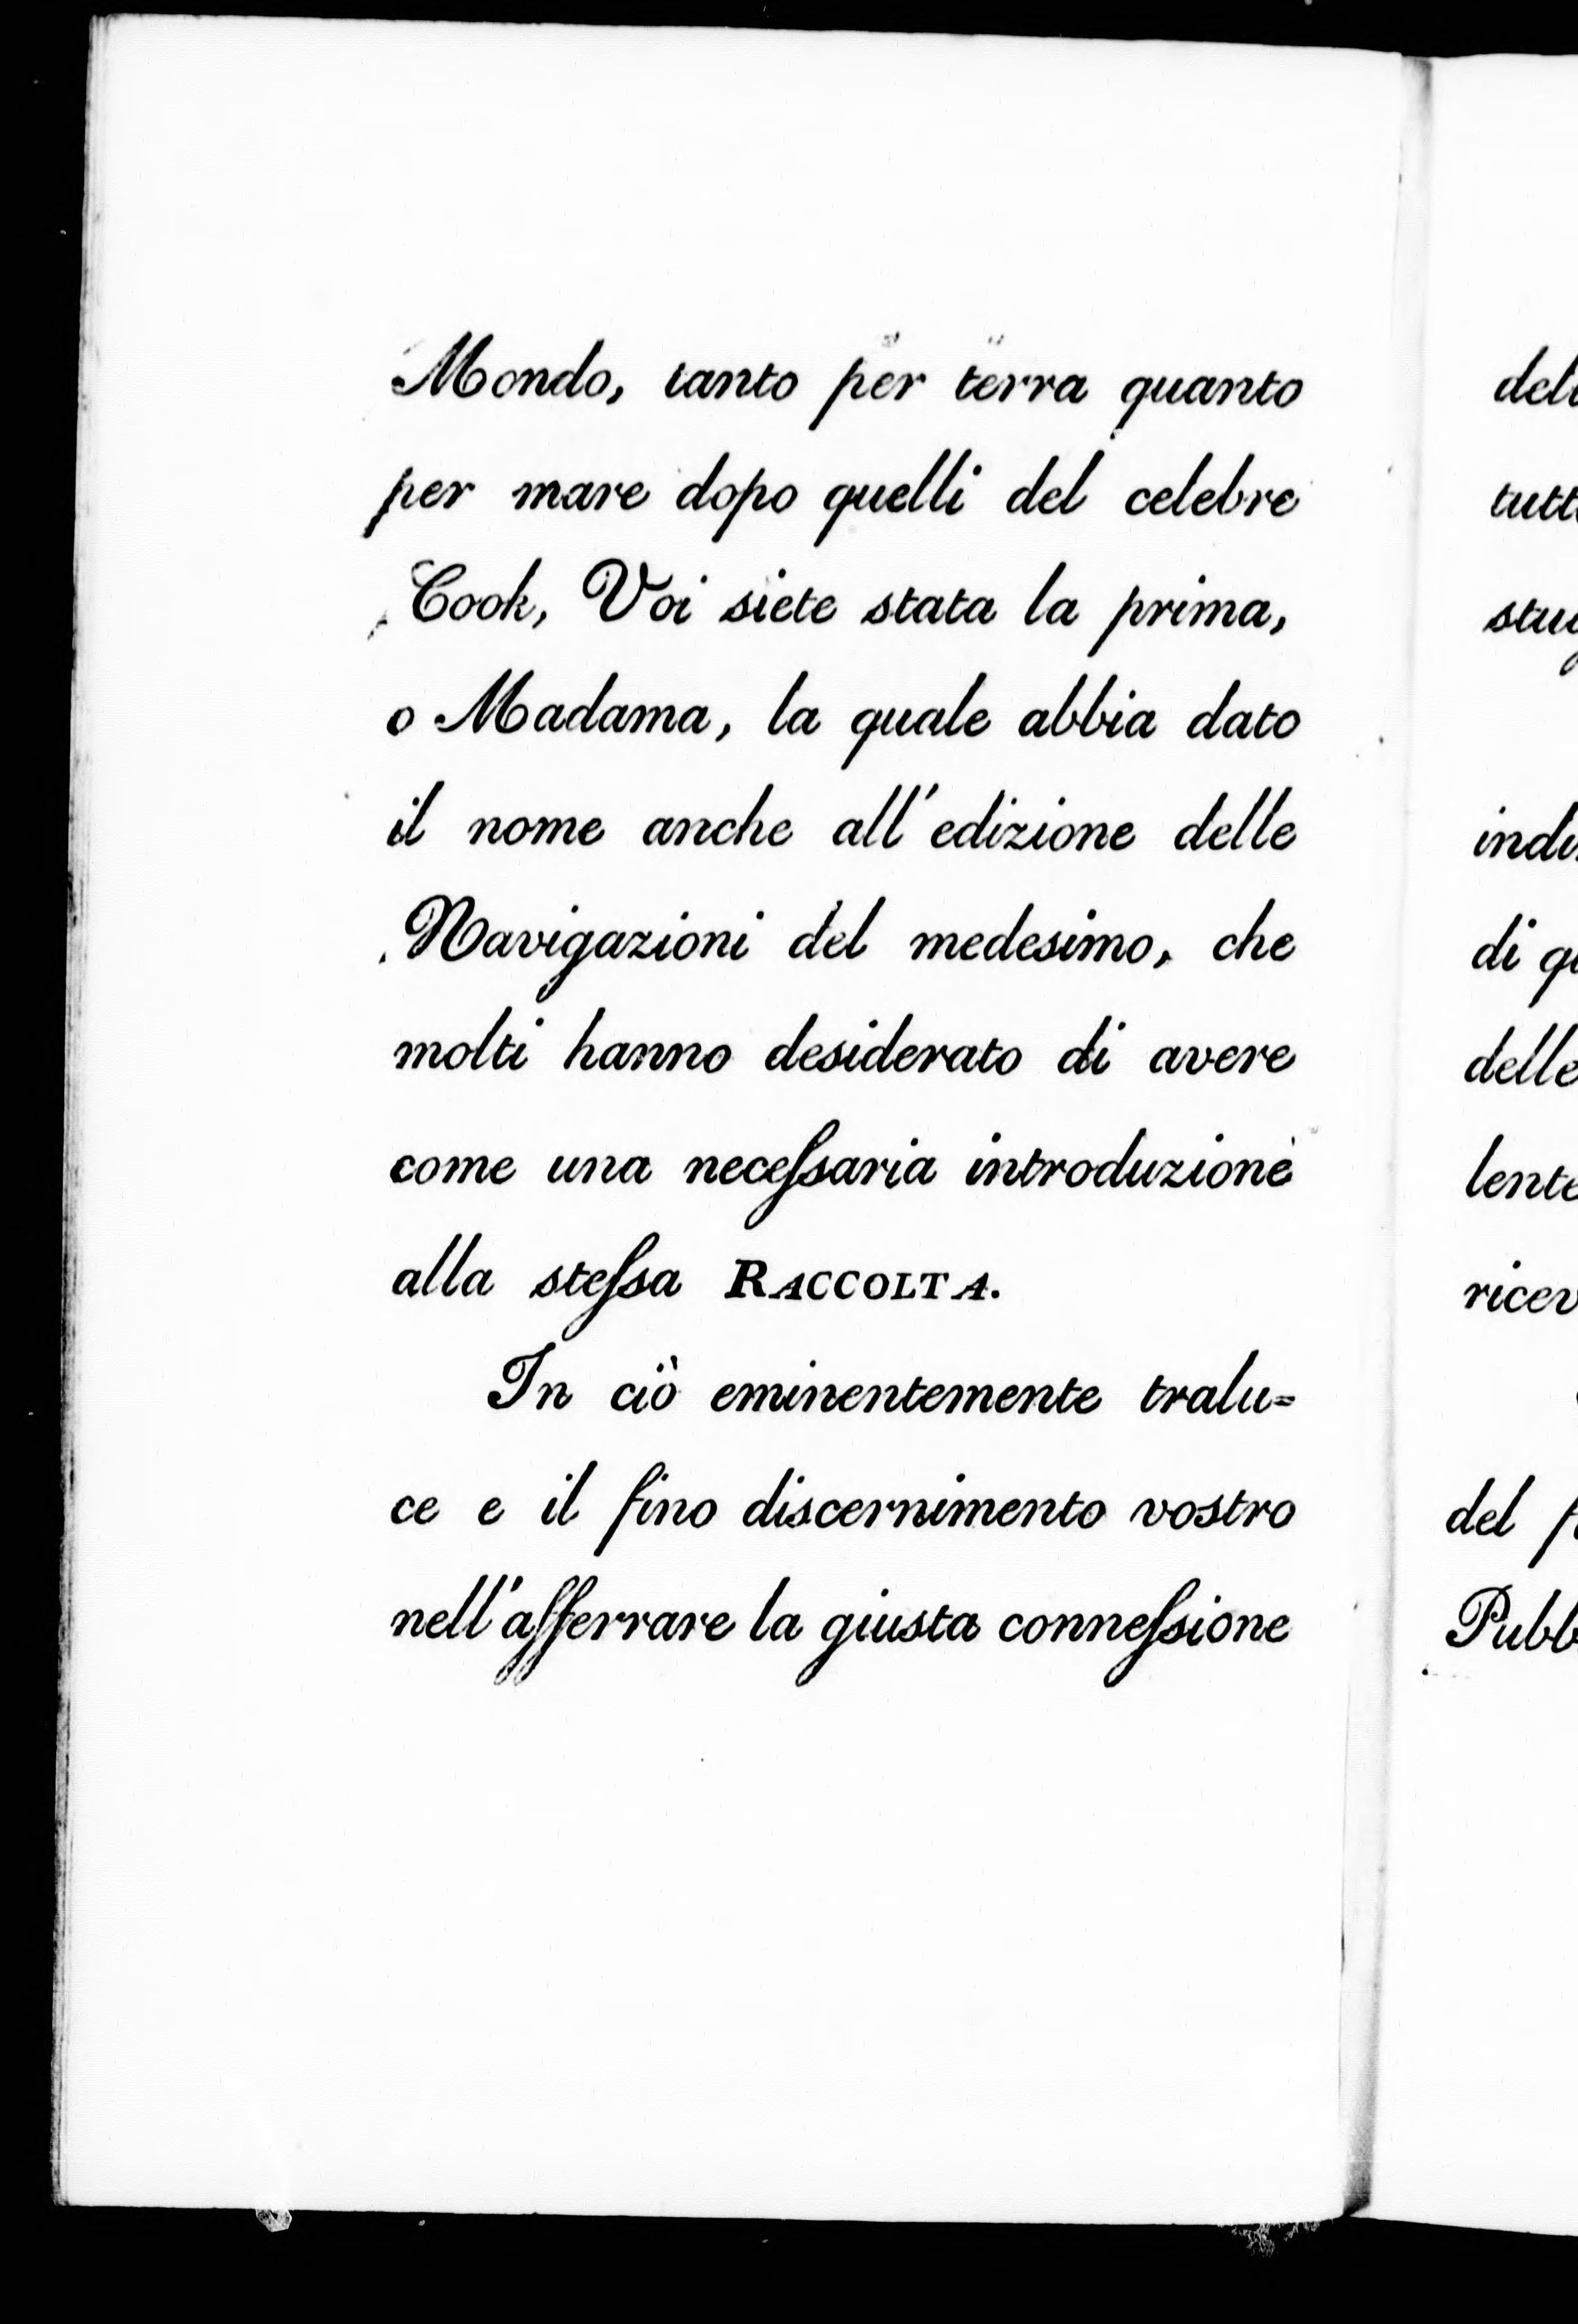 Mondo, tanto per terra quanto
per mare dopo quelli del celebre
Cook, Voi siete stata la prima,
o Madama, la quale abbia dato
il nome anche all'edizione delle
Navigazioni del medesimo, che
molti hanno desiderato di avere
come una neceſsaria introduzione
alla steſsa RACCOLTA.
In ciò eminentemente tralu=
ce e il fino discernimento vostro
nell'afferrare la giusta conneſsione
di
delle
del